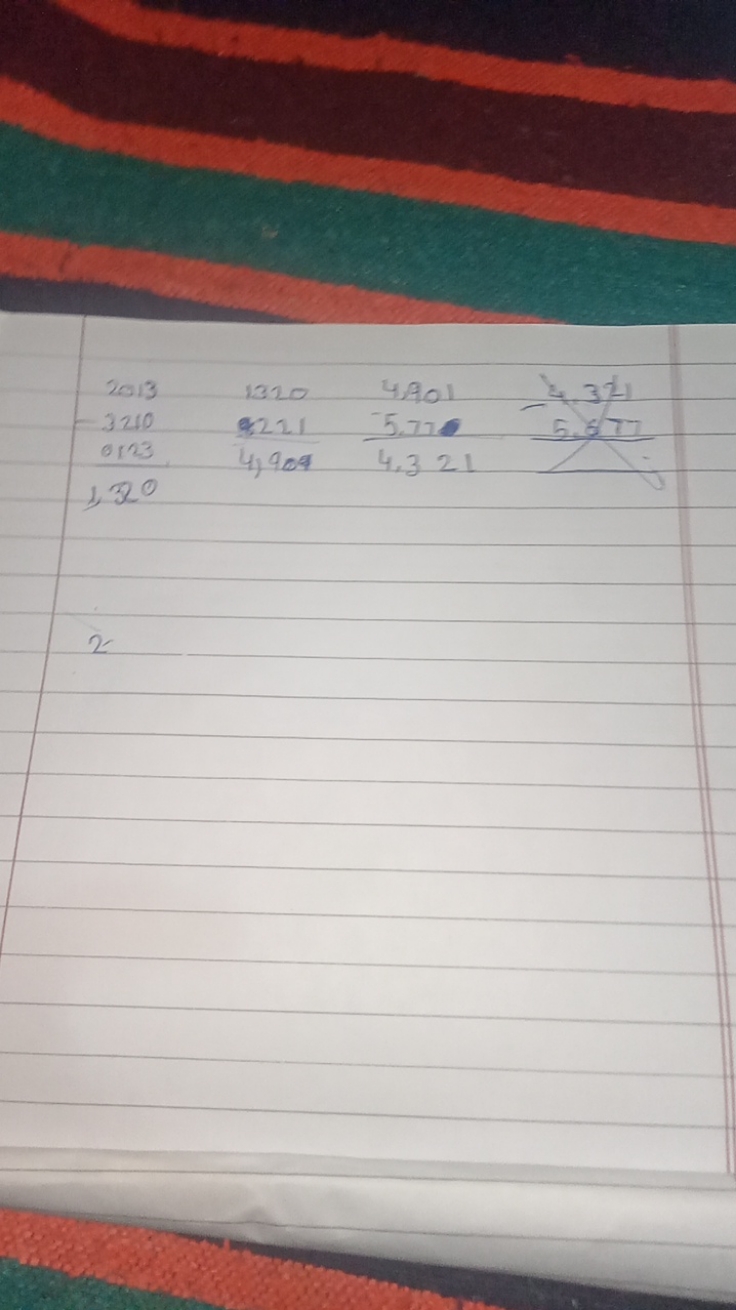 2013 1320 4,901 4,321
- 3210 221 -5,77 - 5,677
0123 4,90 4,321
1,320
2